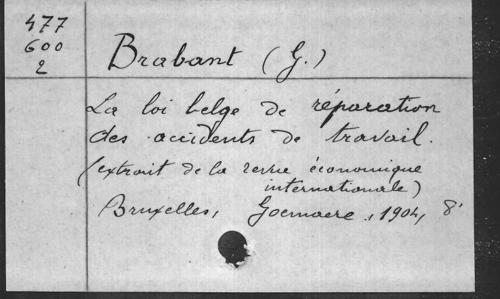 477
600
2
Brabant (G.)
La loi belge de réparation
des accidents de travail.
(extrait de la revue économique
internationale)
Bruxelles, Goemaere, 1904, 8°